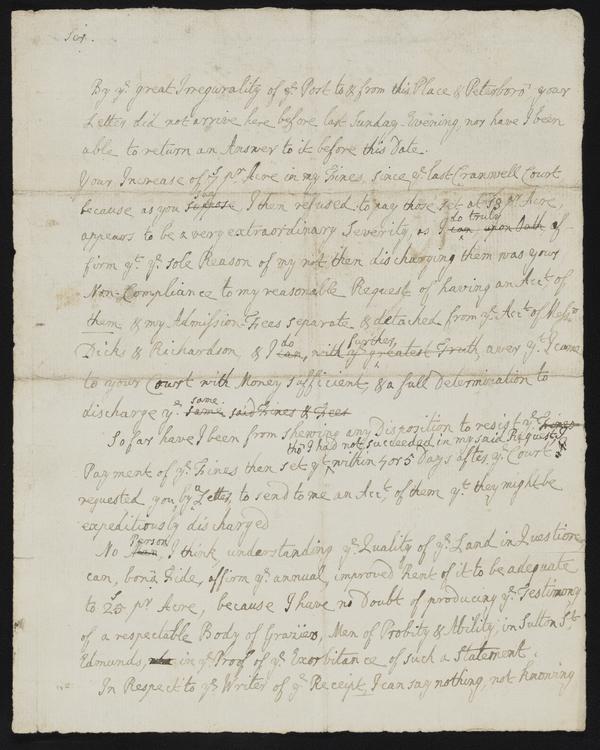 Sir.
By ye. great Irregurality of ye Post to & from this Place & Petersboro' your
Letter did not arrive here before last Sunday-Evening, nor have I been
able to return an Answer to it before this Date.
Your Increase of pr. Acre in my Fines, since ye. last Cranwell Court,
say
because as you suppose I then refused to pay those set at pr. Acre,
do truly
appears to be a very extraordinary Severity, as I can, upon Oath af-
firm yt. ye. sole Reason of my not then discharging them was your
Non-Compliance to my reasonable Request of having an Acct. of
them, & my Admission-Fees separate & detached from ye. Acct. of Messrs.
do further,
Dicks & Richardson, & I can, with ye greatest Truth aver yt. I came
to your Court with Money sufficient, & a full Determination to
same.
discharge ye. same said Fines & Fees
So far have I been from shewing any Disposition to resist ye. Fines
tho' I had not succeeded in my said Request,
Payment of ye. Fines then set yt. within 4 or 5 Days after ye. Court I
requested you by a Letter, to send to me an Acct. of them yt. they might be
expeditiously discharged
Person
No Man, I think understanding ye. Quality of ye. Land in Question,
can, bonâ Fide, affirm ye. annual, improved Rent of it to be adequate
to pr. Acre, because I have no Doubt of producing ye. Testimony
of a respectable Body of Graziers, Men of Probity & Ability, in Sutton St.
Edmunds, in ye. Proof of ye. Exorbitance of such a Statement.
In Respect to ye. Writer of ye. Receipt, I can say nothing, not knowing